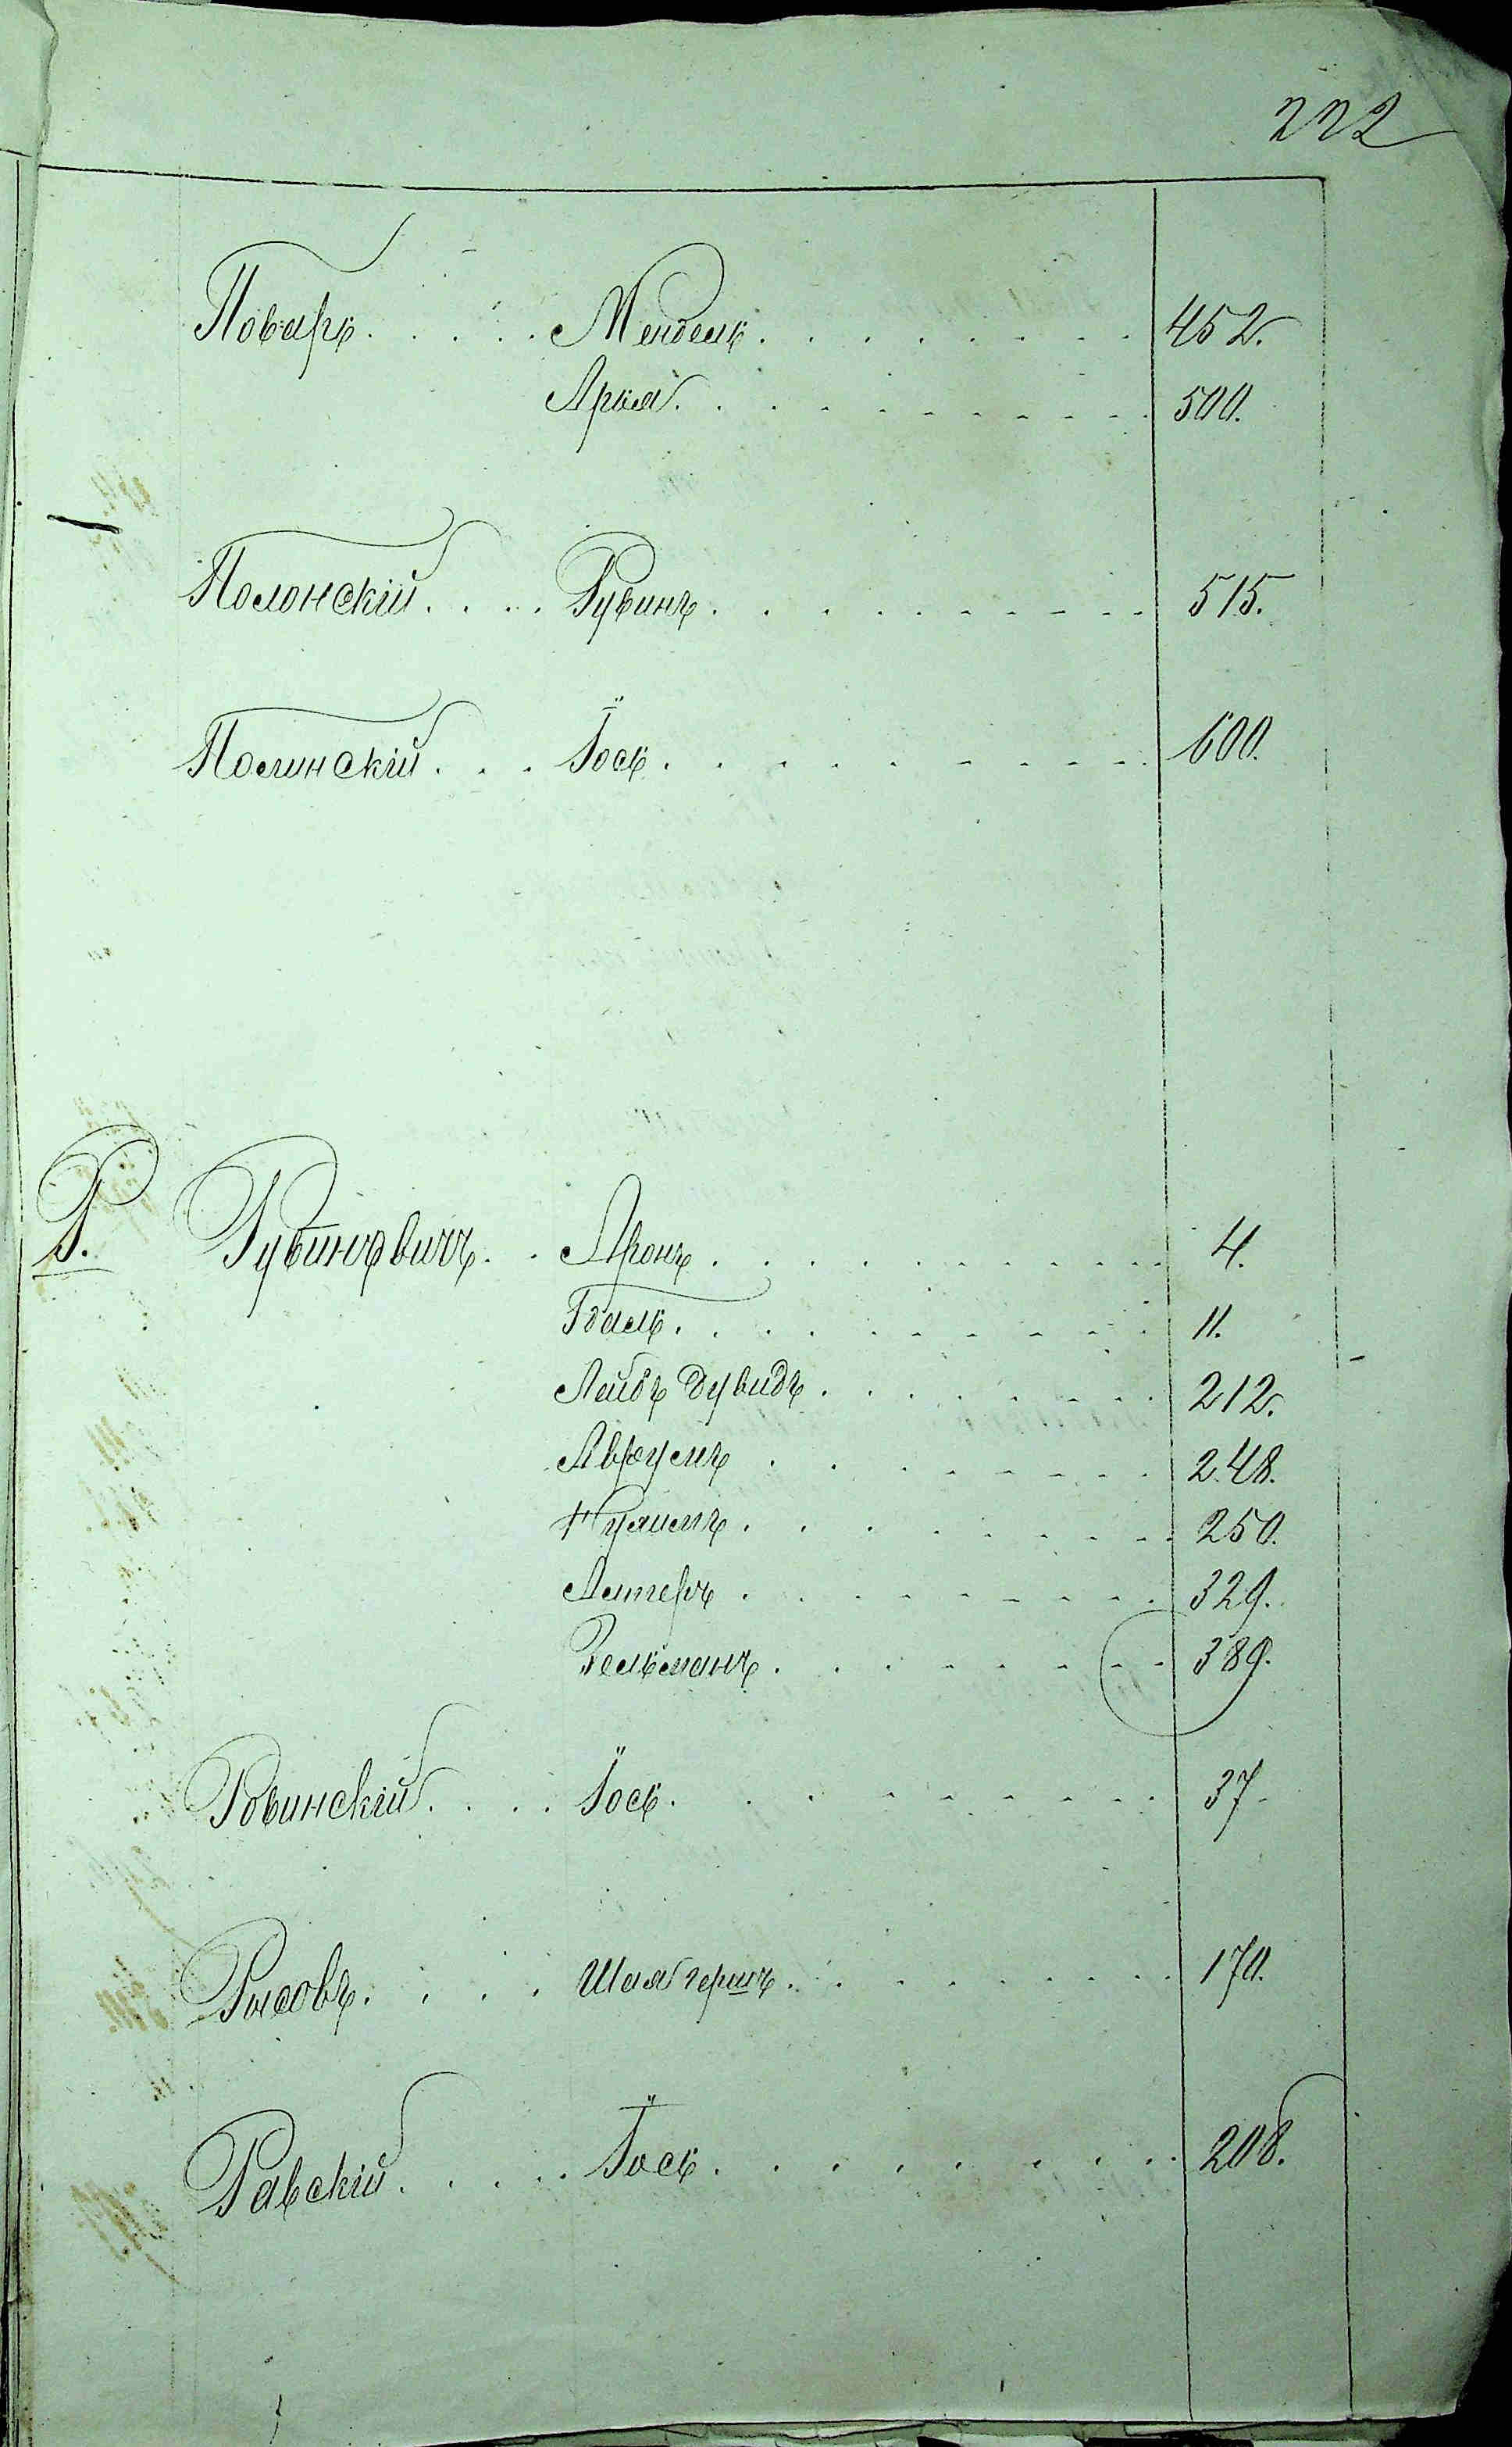 222
Поваръ . . . . . Мендель . . . . . . . . . 452.
Арья . . . . . . . . . . 500.
Полонскій . . . . Рувинъ . . . . . . . . . . 515.
Полинскій . . . Іось . . . . . . . . . . 600.
Р. Рубиновичъ . . Аронъ . . . . . . . . . . 4.
Гдаль . . . . . . . . . . 11.
Лейбъ Дувидъ . . . . . . . . 212.
Аврумъ . . . . . . . . 248.
. . . . . . . . . 250.
Лейзеръ . . . . . . . . . 329.
Зельманъ . . . . . . . . 389.
Ровинскій . . . . Іось . . . . . . . . . . 37.
Рысовъ . . . . . Шая Гершъ . . . . . . . . . 170.
Равскій . . . . . Іось . . . . . . . . . 208.